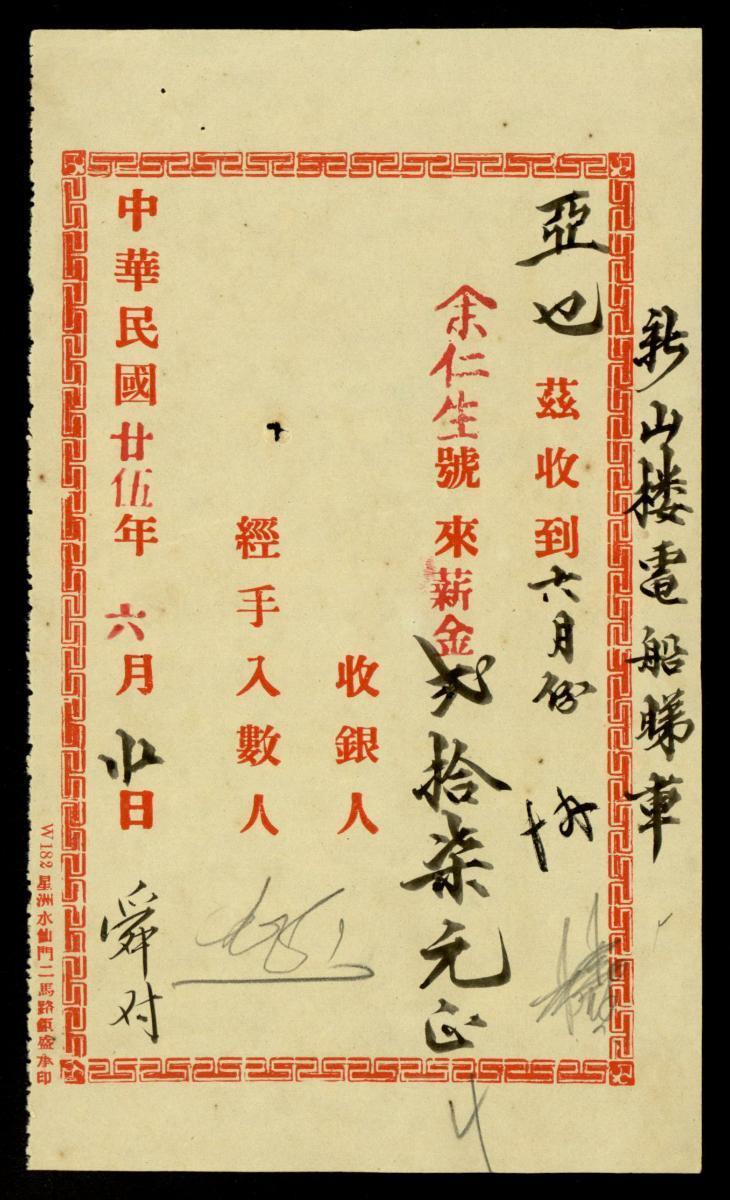 新山楼電船睇車
亞也 茲收到六月份
余仁生號來薪金弍拾柒元正
收銀人
經手入數人
中華民國廿伍年六月廿日 舜对
W182 星洲水仙門二馬路 盛承印